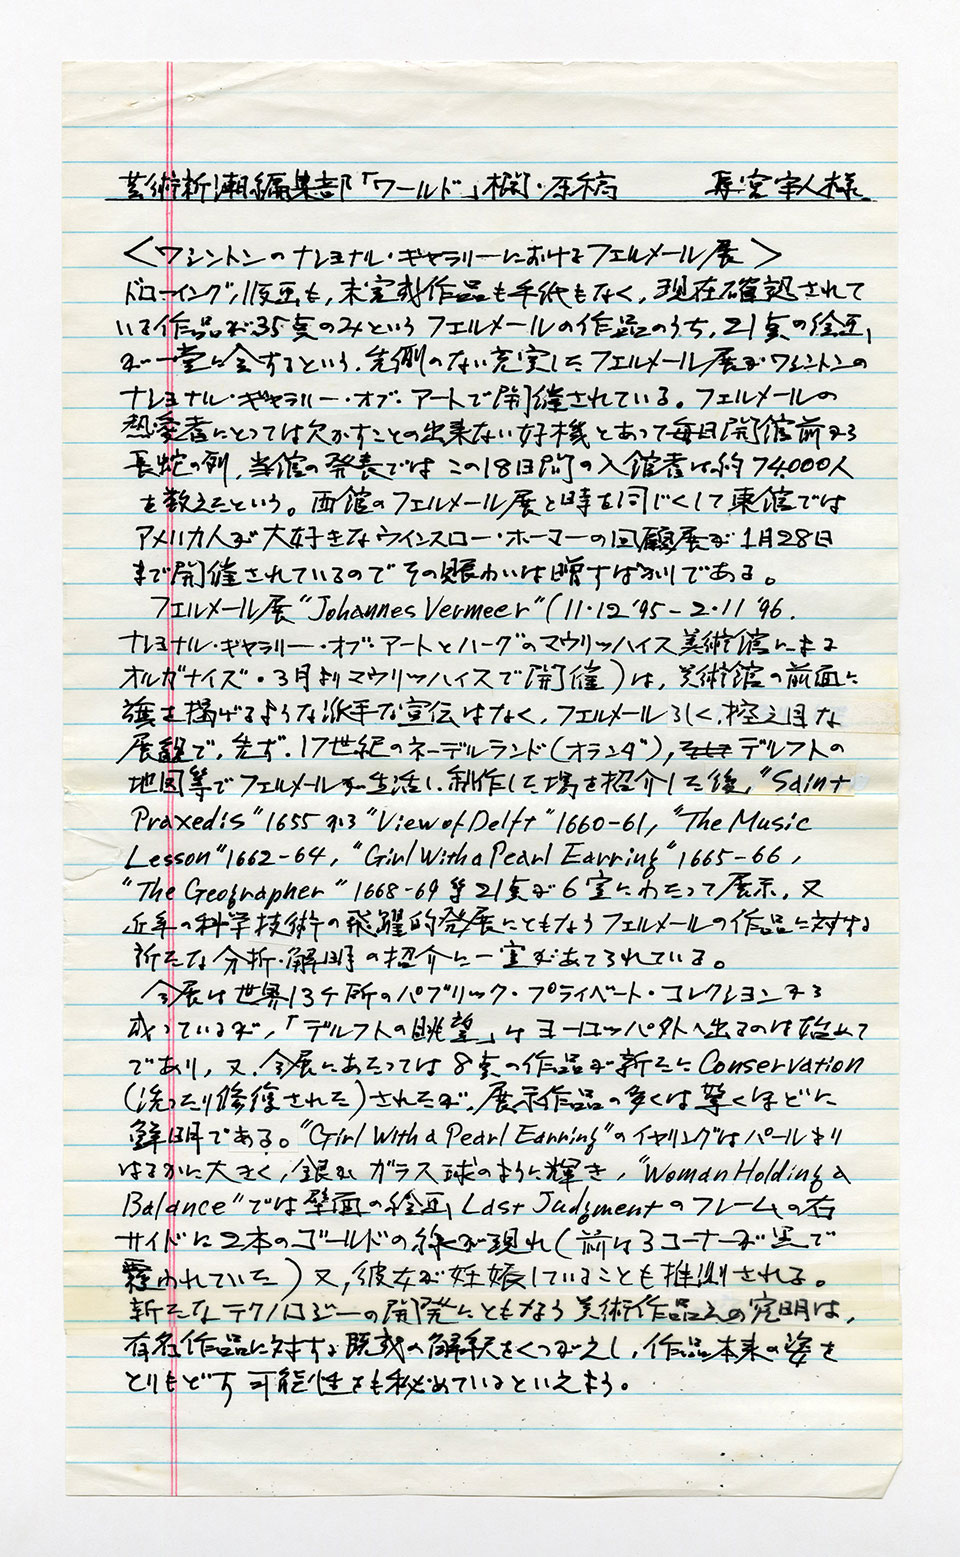 芸術新潮編集部「ワールド」欄・原稿 宗人様
＜ワシントンのナショナル・ギャラリーにおけるフェルメール展＞
ドローイング、版画も、未完成作品も手紙もなく、現在確認されて
いる作品が35点のみというフェルメールの作品のうち、21点の絵画
が一堂に会するという、先例のない充実したフェルメール展がワシントンの
ナショナル・ギャラリー・オブ・アートで開催されている。フェルメールの
熱愛者にとっては欠かすことの出来ない好機とあって毎日開館前から
長蛇の列、当館の発表ではこの18日間の入館者は約74000人
を数えたという。西館のフェルメール展と時を同じくして東館では
アメリカ人が大好きなウインスロー・ホーマーの回顧展が1月28日
まで開催されているのでその賑わいは増すばかりである。
フェルメール展"Johannes Vermeer"(11・12 '95-2・11 '96.
ナショナル・ギャラリー・オブ・アートとハーグのマウリッハイス美術館による
オルガナイズ・3月よりマウリッハイスで開催)は、美術館の前面に
旗を掲げるような派手な宣伝はなく、フェルメールらしく、控え目な
展観で、先ず、17世紀のネーデルランド(オランダ)、デルフトの
地図等でフェルメールが生活し、制作した場を紹介した後、"Saint
Praxedis"1655から"View of Delft"1660-61, "The Music
Lesson"1662-64, "Girl With a Pearl Earring"1665-66,
"The Geographer"1668-69等21点が6室にわたって展示、又
近年の科学技術の飛躍的発展にともなうフェルメールの作品に対する
新たな分析・解明の紹介に一室があてられている。
今展は世界13ケ所のパブリック・プライベート・コレクションから
成っているが、「デルフトの眺望」はヨーロッパ外へ出るのは始めて
であり、又、今展にあたっては8点の作品が新たにConservation
(洗ったり修復された)されたが、展示作品の多くは驚くほどに
鮮明である。"Girl With a Pearl Earring"のイヤリングはパールより
はるかに大きく、銀色ガラス球のように輝き、"Woman Holding a
Balance"では壁面の絵画Last Judgmentのフレームの右
サイドに2本のゴールドの線が現れ(前は3コーナーが黒で
覆われていた)又、彼女が妊娠していることも推測される。
新たなテクノロジーの開発にともなう美術作品えの究明は、
有名作品に対する既成の解釈をくつがえし、作品本来の姿を
とりもどす可能性をも秘めているといえよう。